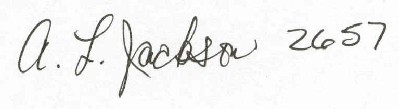 A. L. Jackson 2657